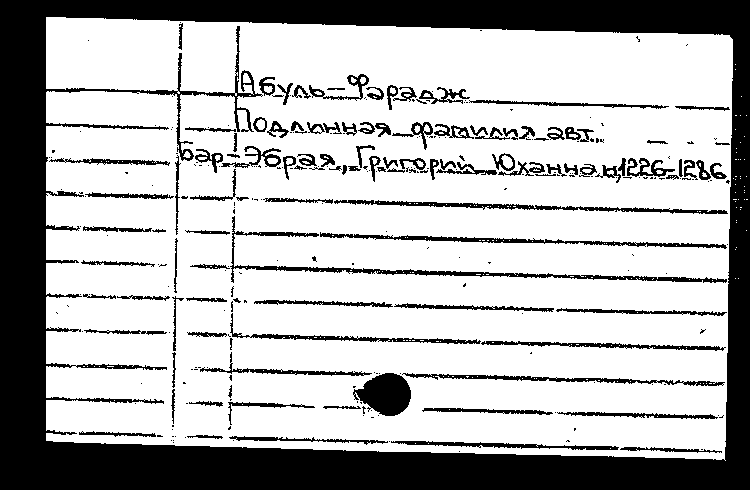 Абуль-Фарадж
Подлинная фамилия авт.
Бар-Эбрая, Григорий Юханнан, 1226-1286.